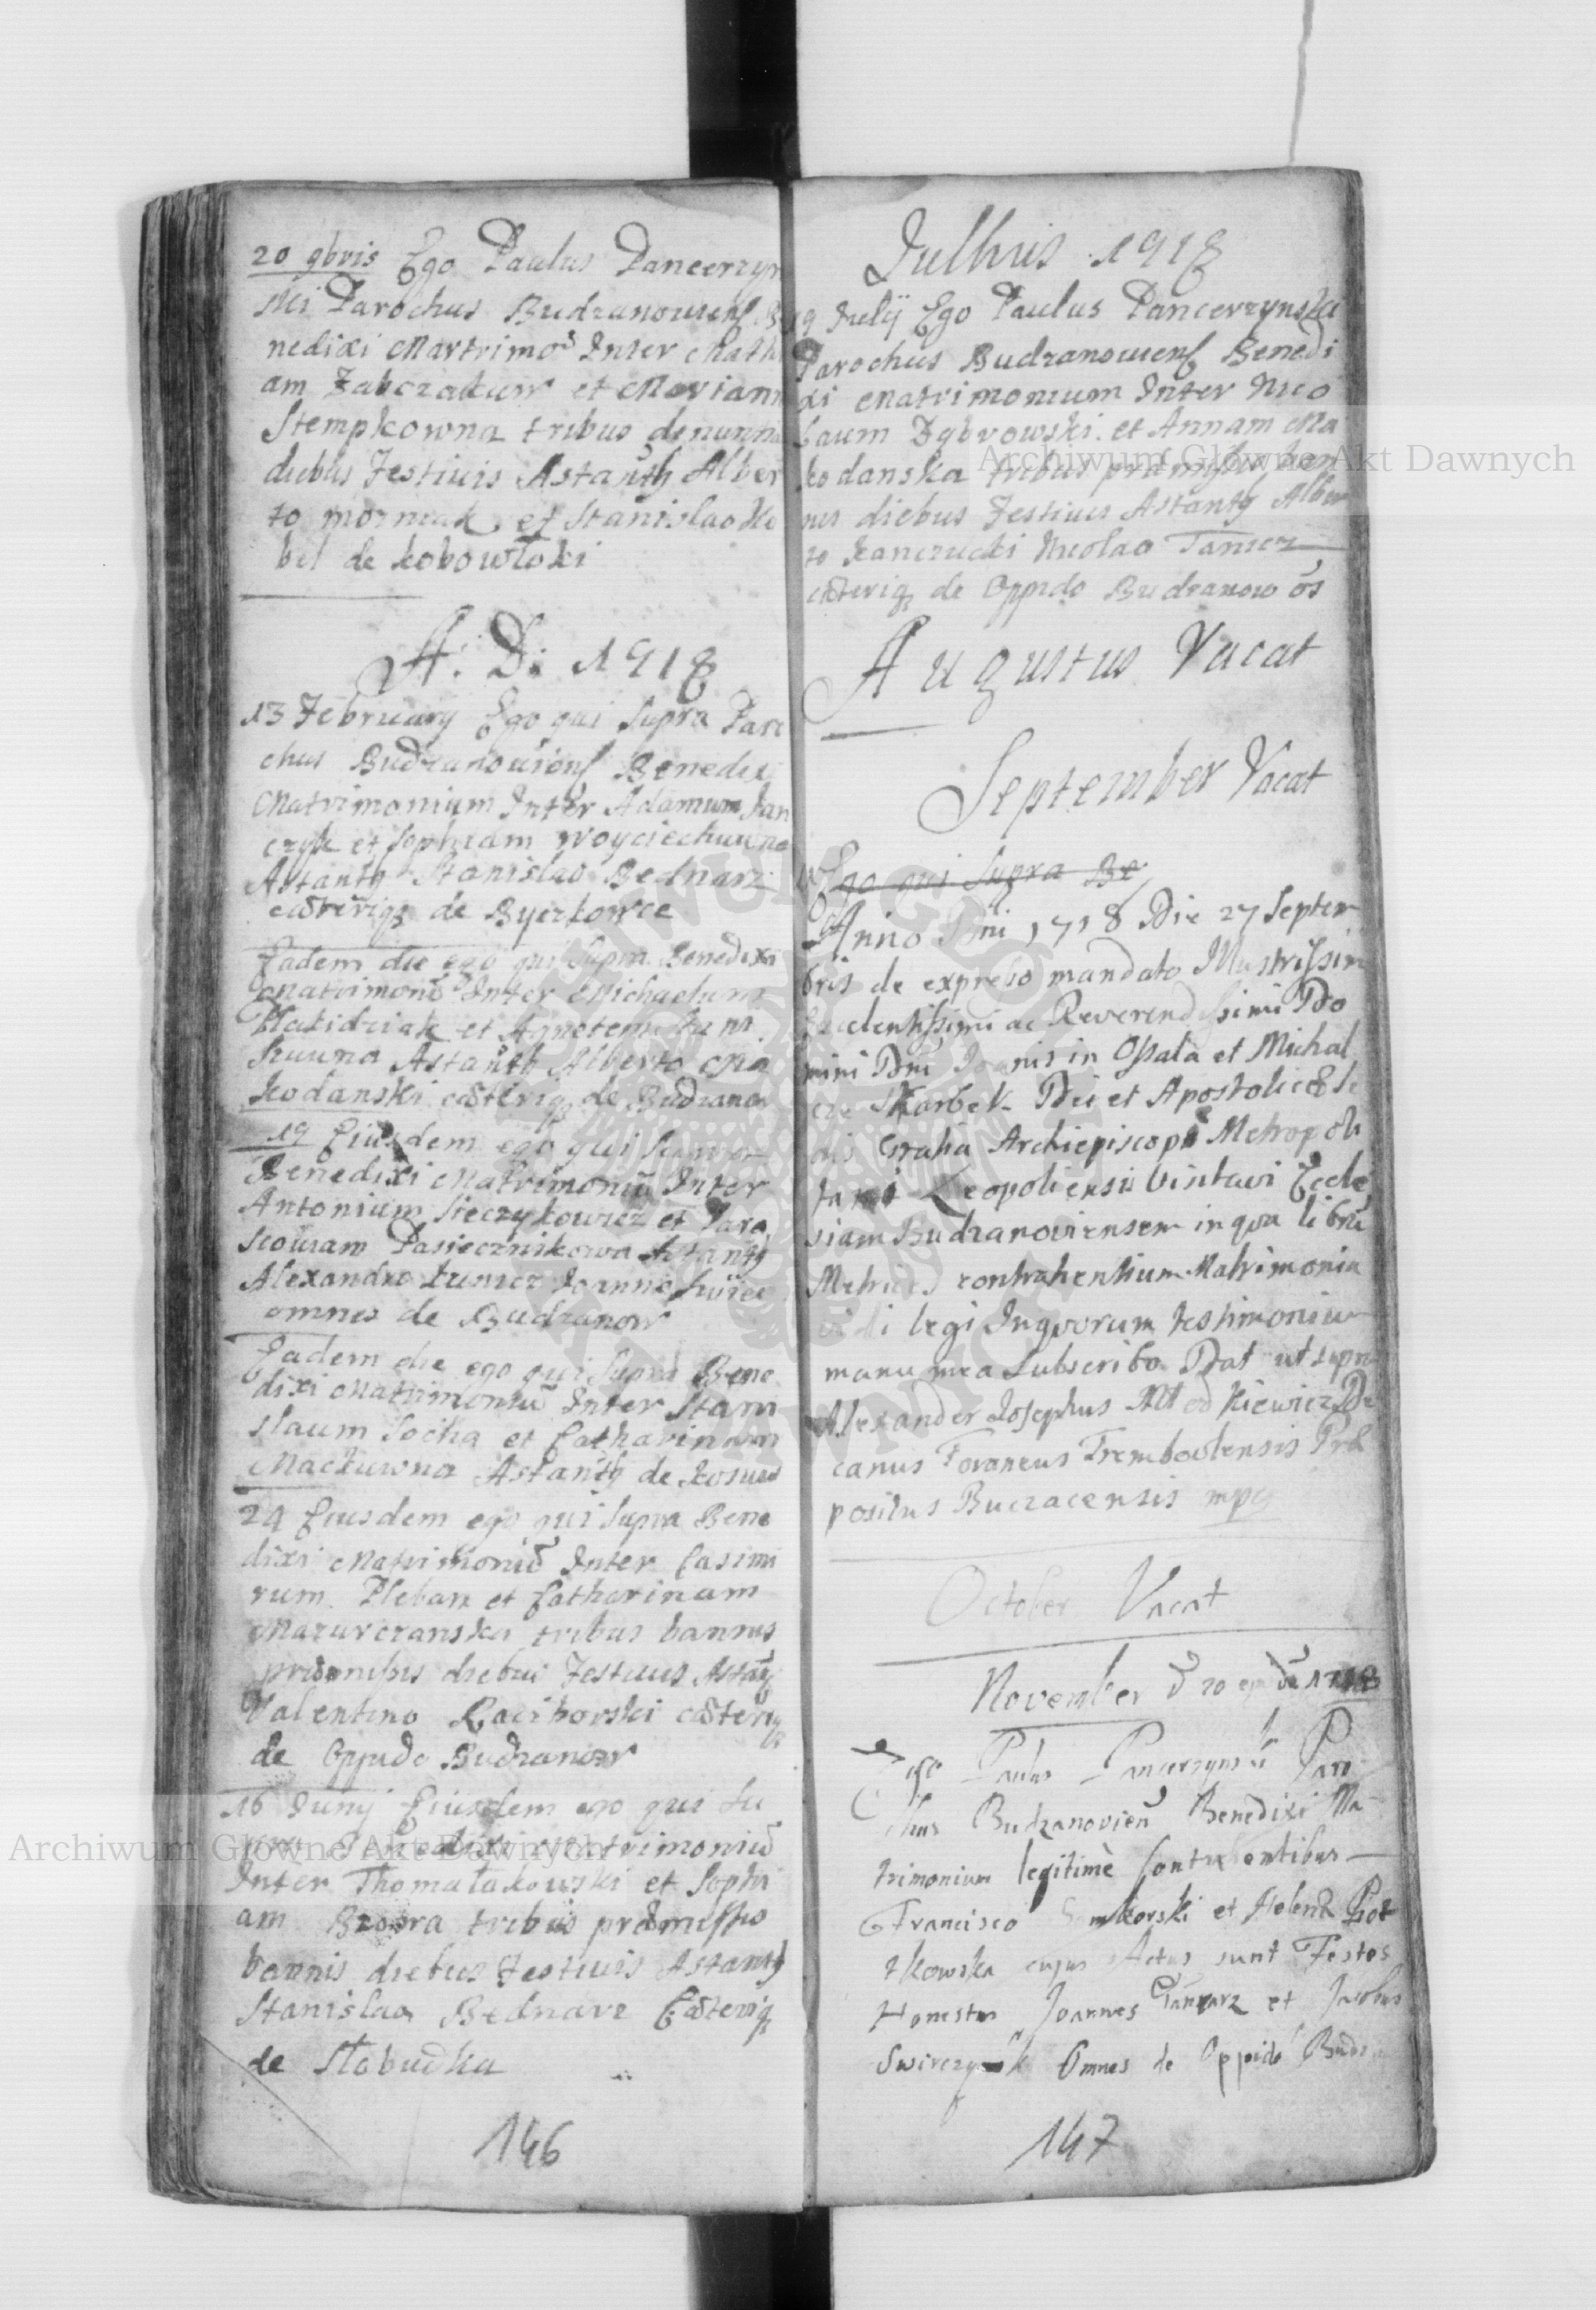 20 9bris Ego Paulus Pancerzyn
ski Parochus Budzanoviens B
nedixi Martrimo Inter Math
am Zabczakuw et Mariann
Stempkowna tribus denuntia
diebus Festivis Astantb Alber
to mozniak et Stanislao Ko
bel de kobowloki
A. D: 1918
13 February Ego qui Supra Paro
chus Budzanoviens Benedixi
Matrimonium Inter Adamum Jan
czyk et Sophiam Woyciechuwna
Astantb Stanislao Bednarz
cæterisq de Byczkowce
Eadem die ego qui Supra Benedixi
Matrimoniu Inter Michaelum
et Agnetem
Astantb Alberto Ma
kodanski cæterisq de Budzanow
19 Eiusdem ego qui Supra
Benedixi Matrimoniu Inter
Antonium Sieczykowicz et Para
scoviam Pasiecznikowa Astantb
Alexandro Joanne
omnes de Budzanow
Eadem die ego qui Supra Bene
dixi Matrimoniu Inter Stani
slaum Socha et Catharinam
Mackuwna Astantb de Kosuw
24 Eiusdem ego qui Supra Bene
dixi Matrimoniu Inter Casimi
rum Pleban et Catharinam
Mazurczanska tribus bannis
præmissis diebus Festivis Astantb
Valentino Raciborski cæterisq
de Oppido Budzanow
16 Juny Eiusdem ego qui Su
pra Benedixi Matrimoniu
Inter Thoma et Sophi
am Bzdora tribus præmissis
bannis diebus Festivis Astantb
Stanislao Bednarz Cæterisq
de Slobudka
146
Julhius 1918
19 July Ego Paulus Pancerzynski
Parochus Budzanowiens Benedi
xi Matrimonium Inter Nico
laum Dąbrowski et Annam Ma
kodanska tribus præmissis ban
nis diebus Festivis Astantb Alber
to Kanczucki Nicolao
cæterisq de Oppido Budzanow
Augustus Vacat
September Vacat
Ego qui Supra Be
Anno Dni 1718 Die 27 Septem
bris de expresso mandato Illustrissimi
Excelentissimi ac Reverendissimi Do
mini Dni Joanis in Ossala et Michal
cze Skarbek Dei et Apostolicæ Se
dis Gratia Archiepiscopi Metropoli
tani Leopoliensis Visitavi Eccle
siam Budzanoviensem in qva libru
Metrices contrahentium Matrimonia
vidi legi Inqvorum testimonium
manu mea Subscribo Dat ut supra
Alexander Josephus De
canus Foraneus Trembovlensis Præ
positus Buczacensis mp
October Vacat
November d 20
Ego Paulus Pancerzynski Paro
chus Budzanovien Benedixi Ma
trimonium legitimè Contrahentibus
Francisco et Helena Piot
rkowska cujus Actus sunt Testes
Honestus Joannes et Jacobus
Omnes de Oppido Budza
147
Archiwum Główne Akt Dawnych
Archiwum Główne Akt Dawnych